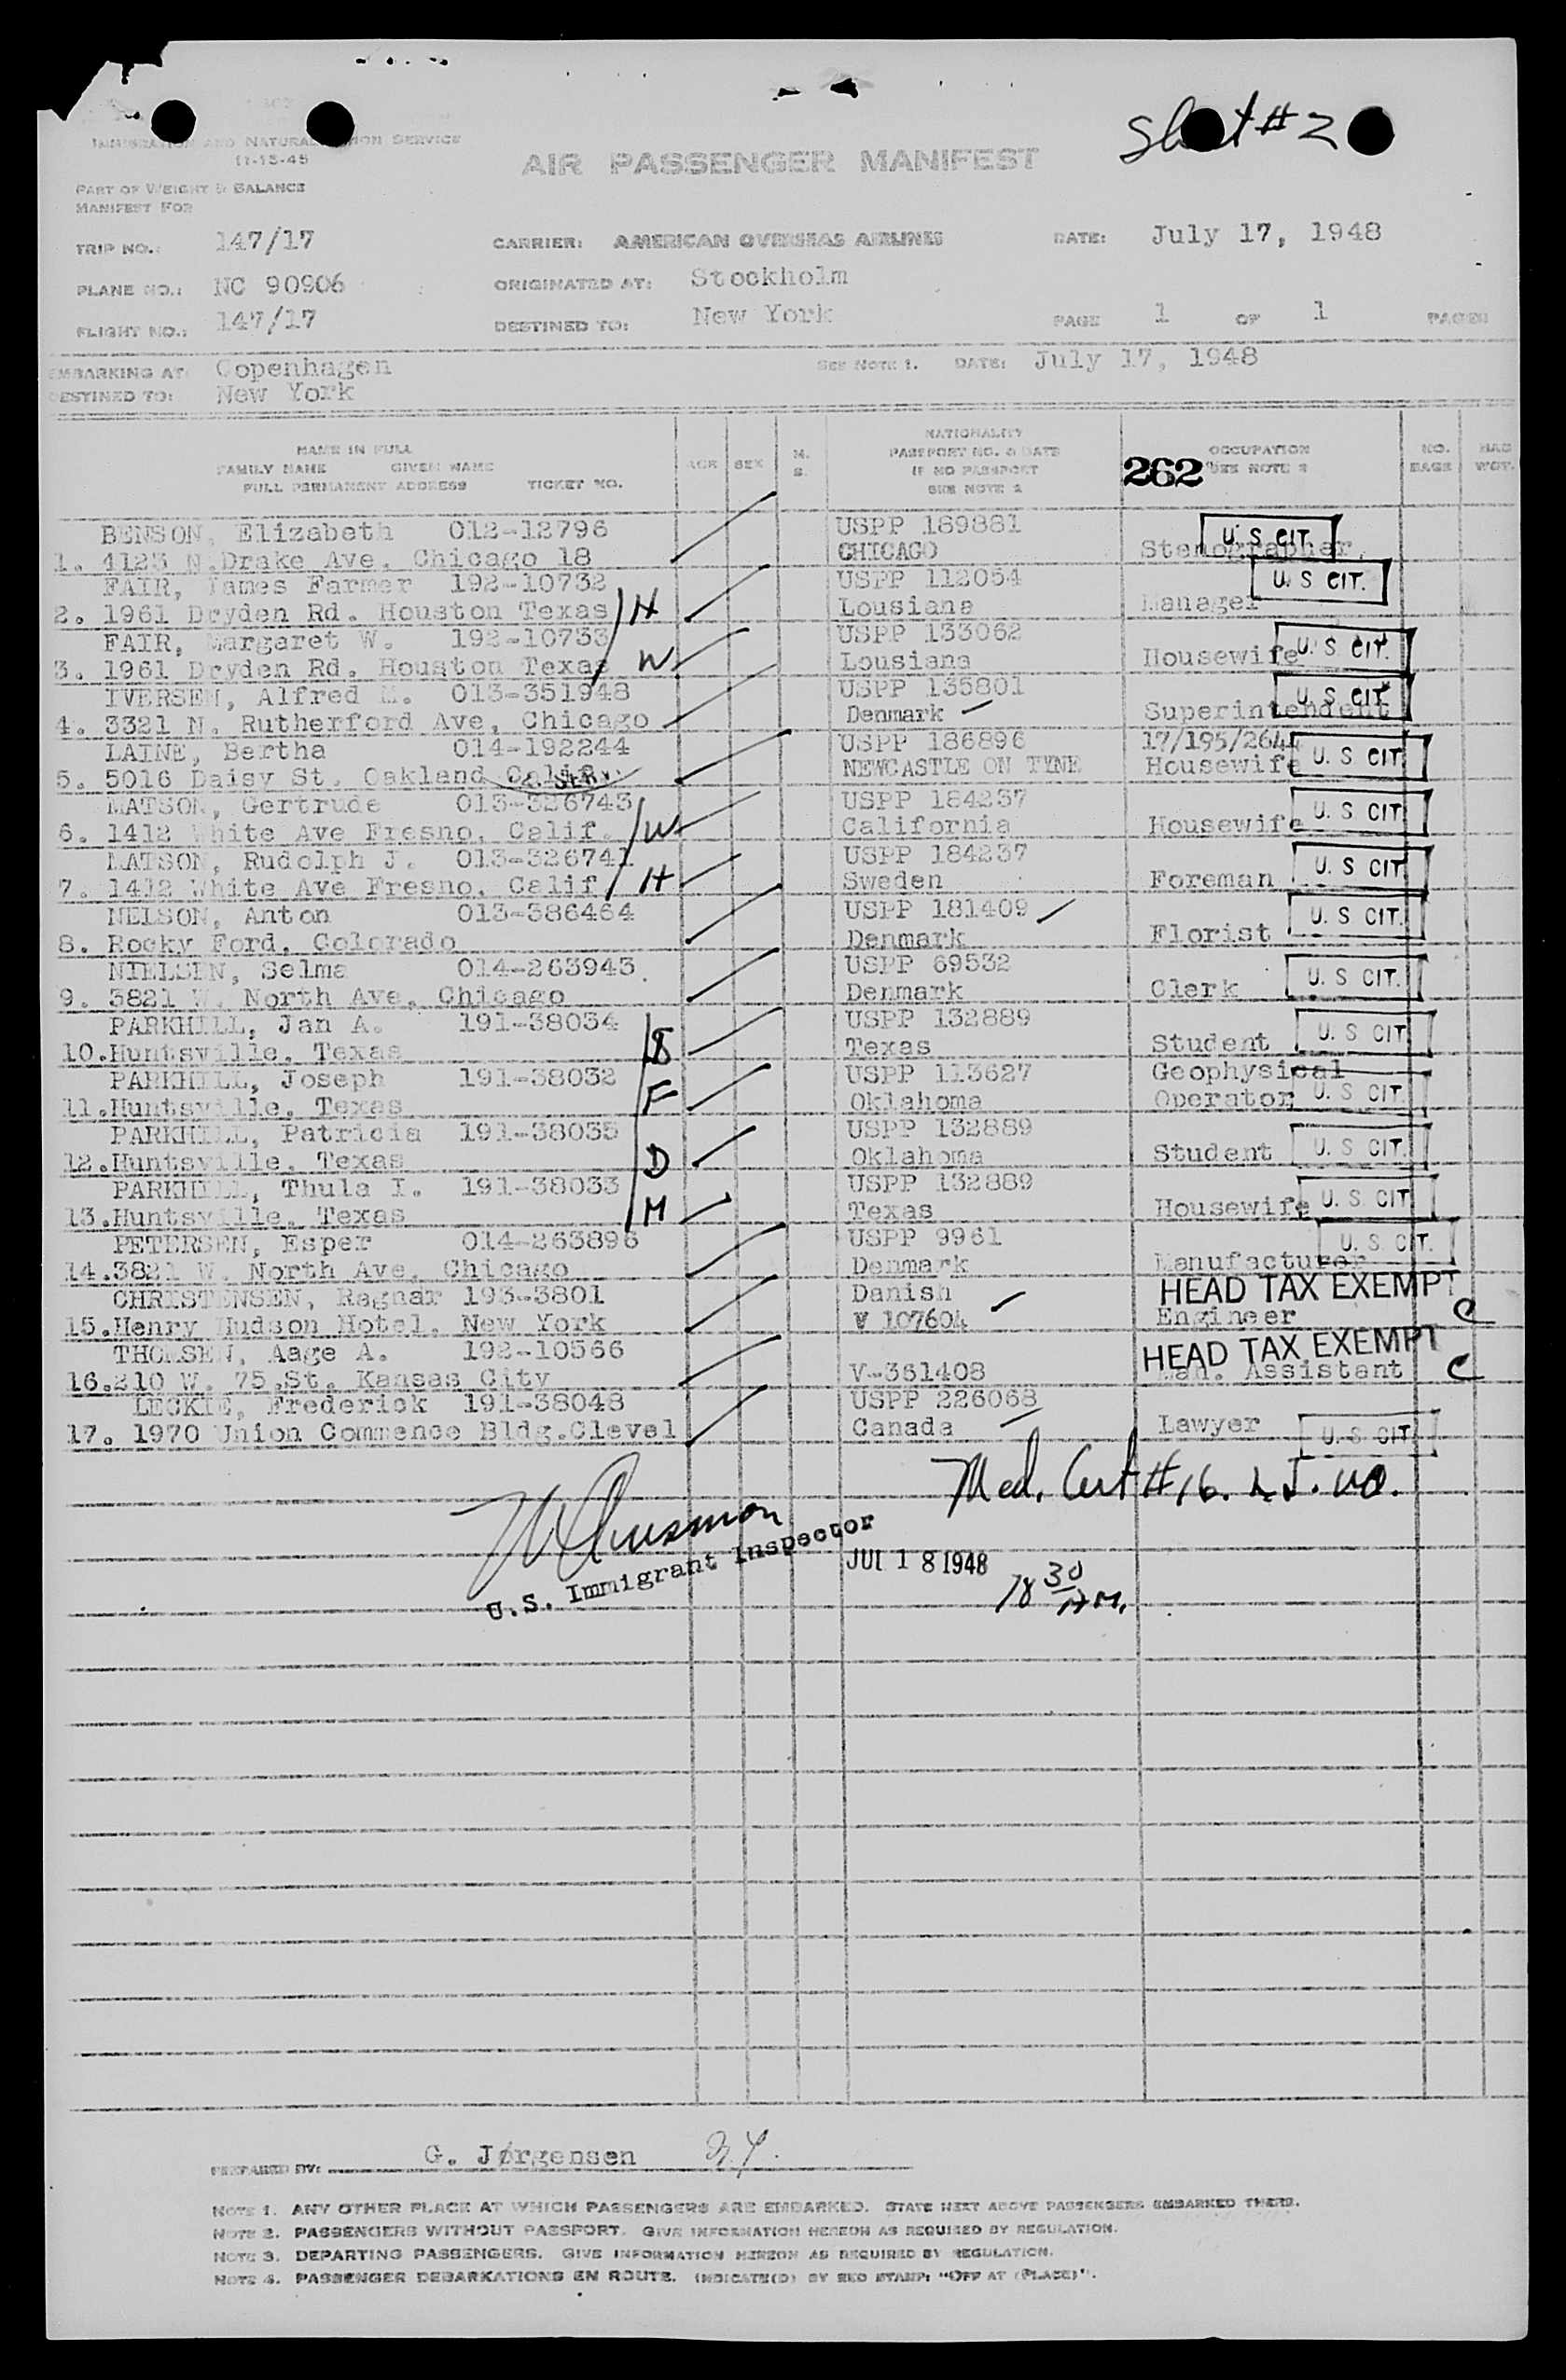 Sheet # 2
IMMIGRATION AND NATURALIZATION SERVICE
11-15-45
AIR PASSENGER MANIFEST
PART OF WEIGHT & BALANCE
MANIFEST FOR
TRIP NO.: 147/17 CARRIER: AMERICAN OVERSEAS AIRLINES DATE: July 17, 1948
PLANE NO.: NC 90906 ORIGINATED AT: Stockholm
FLIGHT NO.: 147/17 DESTINED TO: New York PAGE 1 OF 1 PAGES
EMBARKING AT: Copenhagen SEE NOTE 1. DATE: July 17, 1948
DESTINED TO: New York
NAME IN FULL
FAMILY NAME GIVEN NAME
FULL PERMANENT ADDRESS TICKET NO.
AGE SEX M. S.
NATIONALITY
PASSPORT NO. & DATE
IF NO PASSPORT
SEE NOTE 2
262
OCCUPATION
SEE NOTE 3
NO. BAGS
BAG WGT.
BENSON, Elizabeth 012-12796 USPP 189881 U. S CIT.
1. 4123 N.Drake Ave. Chicago 18 CHICAGO Stenographer
FAIR, James Farmer 192-10732 USPP 112054 U. S CIT.
2. 1961 Dryden Rd. Houston Texas H Lousiana Manager
FAIR, Margaret W. 192-10733 USPP 133062 U. S CIT.
3. 1961 Dryden Rd. Houston Texas W Lousiana Housewife
IVERSEN, Alfred M. 013-351948 USPP 135801 U. S CIT
4. 3321 N. Rutherford Ave, Chicago Denmark Superintendent
LAINE, Bertha 014-192244 USPP 186896 17/195/264 U. S CIT
5. 5016 Daisy St. Oakland Calif. NEWCASTLE ON TYNE Housewife
MATSON, Gertrude 013-326743 USPP 184237 U. S CIT
6. 1412 White Ave Fresno, Calif. W California Housewife
MATSON, Rudolph J. 013-326741 USPP 184237 U. S CIT
7. 1412 White Ave Fresno, Calif H Sweden Foreman
NELSON, Anton 013-386464 USPP 181409 U. S CIT.
8. Rocky Ford, Colorado Denmark Florist
NIELSEN, Selma 014-263943 USPP 69532 U. S CIT.
9. 3821 W. North Ave, Chicago Denmark Clerk
PARKHILL, Jan A. 191-38034 USPP 132889 U. S CIT
10.Huntsville, Texas Texas Student
PARKHILL, Joseph 191-38032 USPP 113627 Geophysical
11.Huntsville, Texas F Oklahoma Operator U. S CIT.
PARKHILL, Patricia 191-38035 USPP 132889 U. S CIT.
12.Huntsville, Texas D Oklahoma Student
PARKHILL, Thula I. 191-38033 USPP 132889 U. S CIT
13.Huntsville, Texas M Texas Housewife
PETERSEN, Esper 014-263896 USPP 9961 U. S CIT.
14.3821 W. North Ave, Chicago Denmark Manufacturer
CHRISTENSEN, Ragnar 193-3801 Danish HEAD TAX EXEMPT
15.Henry Hudson Hotel. New York V 107604 Engineer C
THOMSEN, Aage A. 192-10566 HEAD TAX EXEMPT
16.210 W. 75.St. Kansas City V-361408 Man. Assistant C
LECKIE, Frederick 191-38048 USPP 226068
17. 1970 Union Commence Bldg.Clevel Canada Lawyer U. S CIT
Med. Cert #16.
U.S. Immigrant Inspector
JUL 18 1948
30 A M.
PREPARED BY: G. Jørgensen
NOTE 1. ANY OTHER PLACE AT WHICH PASSENGERS ARE EMBARKED. STATE NEXT ABOVE PASSENGERS EMBARKED THERE.
NOTE 2. PASSENGERS WITHOUT PASSPORT. GIVE INFORMATION HEREON AS REQUIRED BY REGULATION.
NOTE 3. DEPARTING PASSENGERS. GIVE INFORMATION HEREON AS REQUIRED BY REGULATION.
NOTE 4. PASSENGER DEBARKATIONS EN ROUTE. INDICATE(D) BY RED STAMP: "OFF AT (PLACE)".